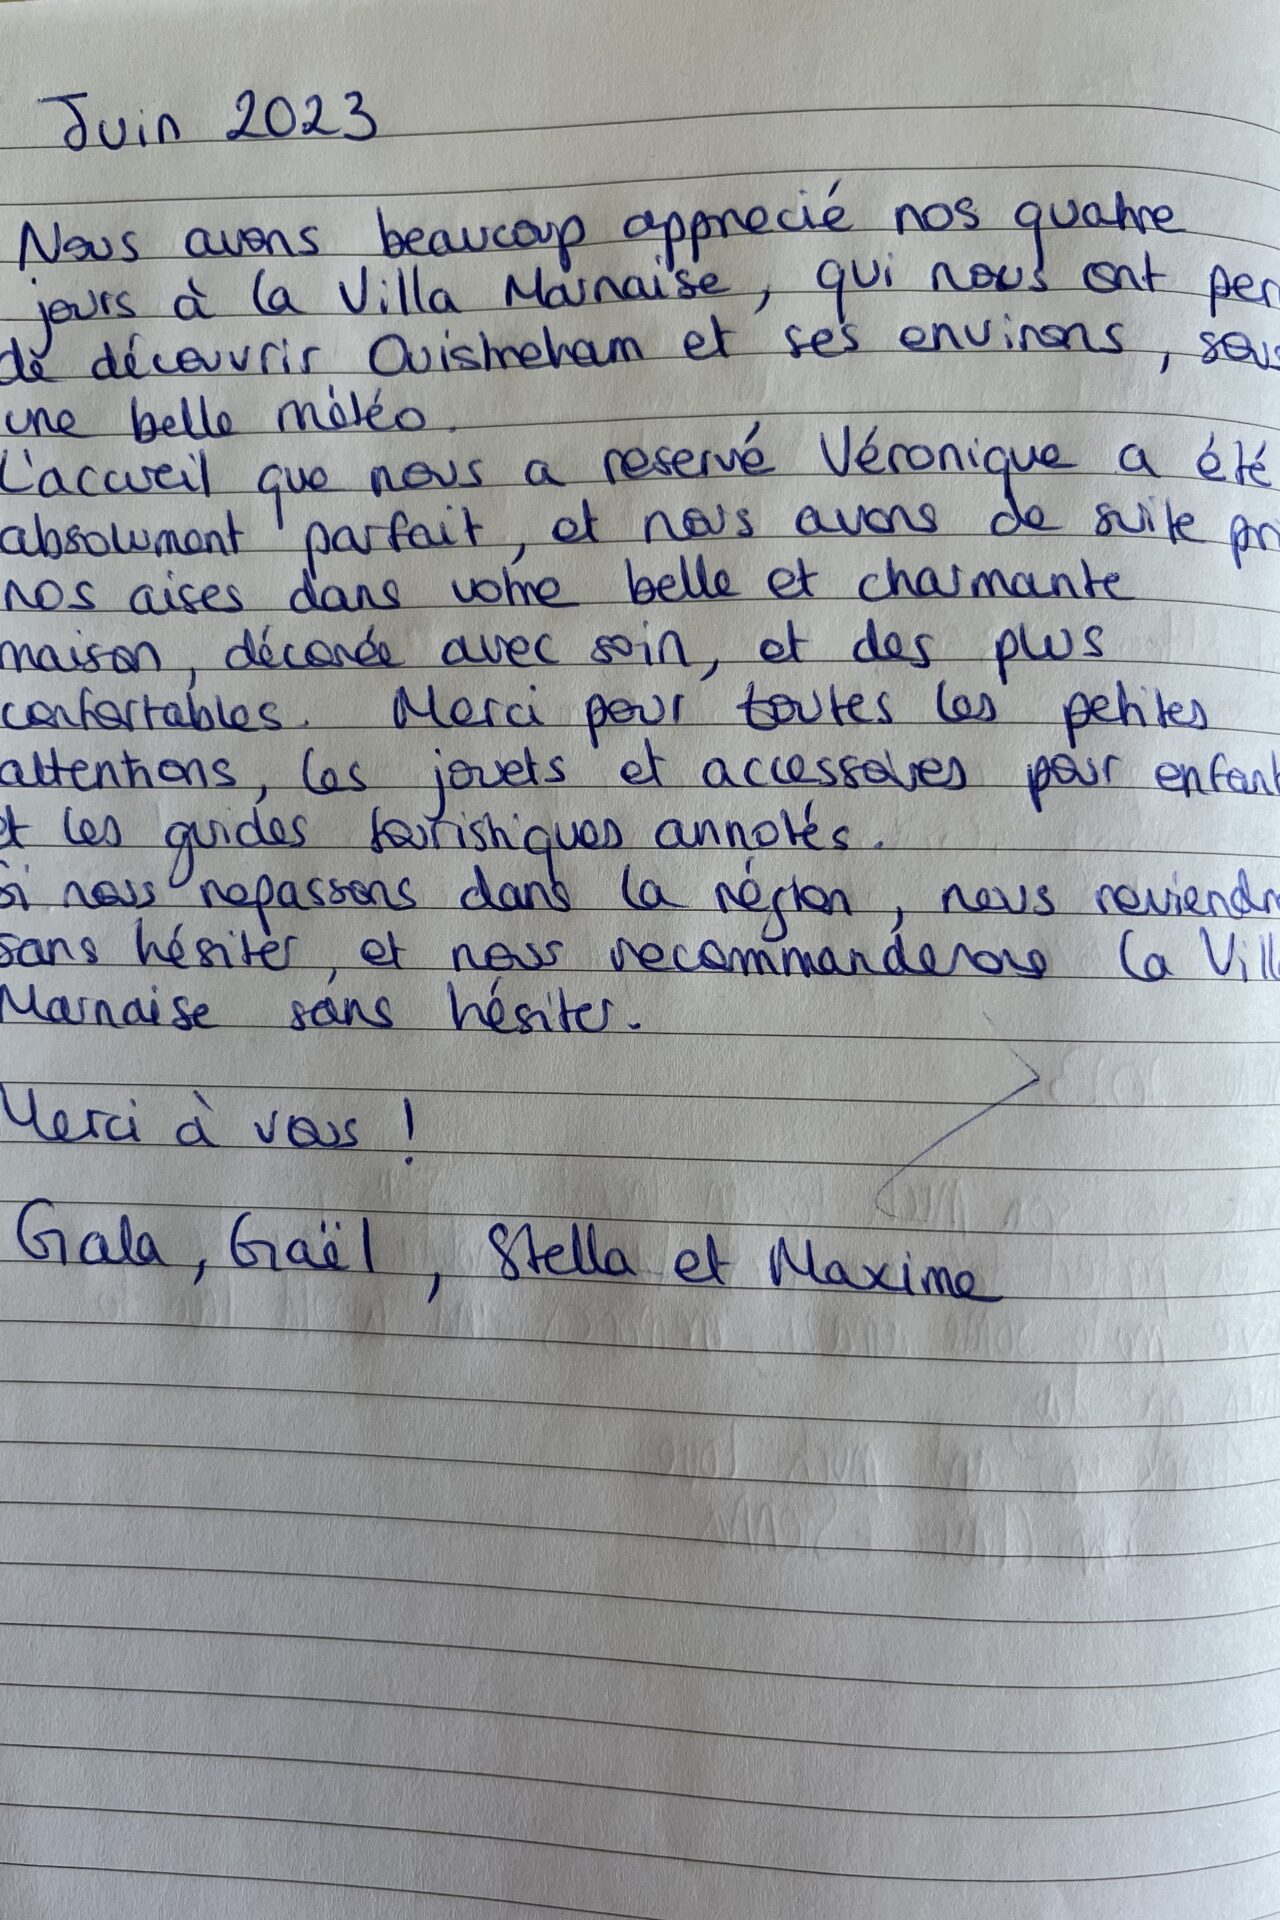 Juin 2023
Nous avons beaucoup apprecié nos quatre
jours à la Villa Marnaise, qui nous ont per
de découvrir Ouistreham et ses environs, sous
une belle météo.
L'accueil que nous a reservé Véronique a été
absolument parfait, et nous avons de suite pri
nos aises dans votre belle et charmante
maison, décorée avec soin, et des plus
confortables. Merci pour toutes les petites
attentions, les jouets et accessoires pour enfant
et les guides touristiques annotés.
Si nous repassons dans la région, nous reviendr
sans hésiter, et nous recommanderons la Villa
Marnaise sans hésiter.
Merci à vous !
Gala, Gaël, Stella et Maxime